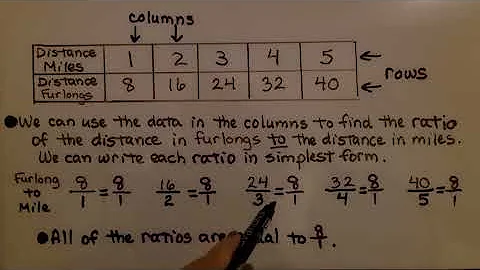 columns
Distance Miles 1 2 3 4 5
Distance Furlongs 8 16 24 32 40
rows
We can use the data in the columns to find the ratio
of the distance in furlongs to the distance in miles.
We can write each ratio in simplest form.
Furlong to Mile 8/1 = 8/1 16/2 = 8/1 24/3 = 8/1 32/4 = 8/1 40/5 = 8/1
All of the ratios are to 8/1.